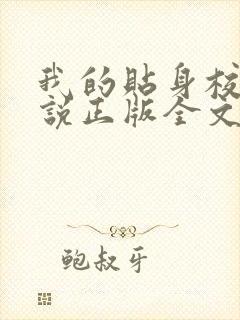 我的貼身校
說正版全文
鲍叔牙